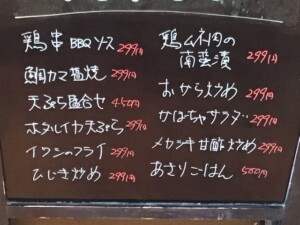 鶏串BBQソース 299円
鯛カマ塩焼 299円
天ぷら盛合せ 450円
ホタルイカ天ぷら 299円
イワシのフライ 299円
ひじき炒め 299円
鶏ムネ肉の
南蛮漬 299円
おから炒め 299円
かぼちゃサラダ 299円
メカジキ甘酢炒め 299円
あさりごはん 500円